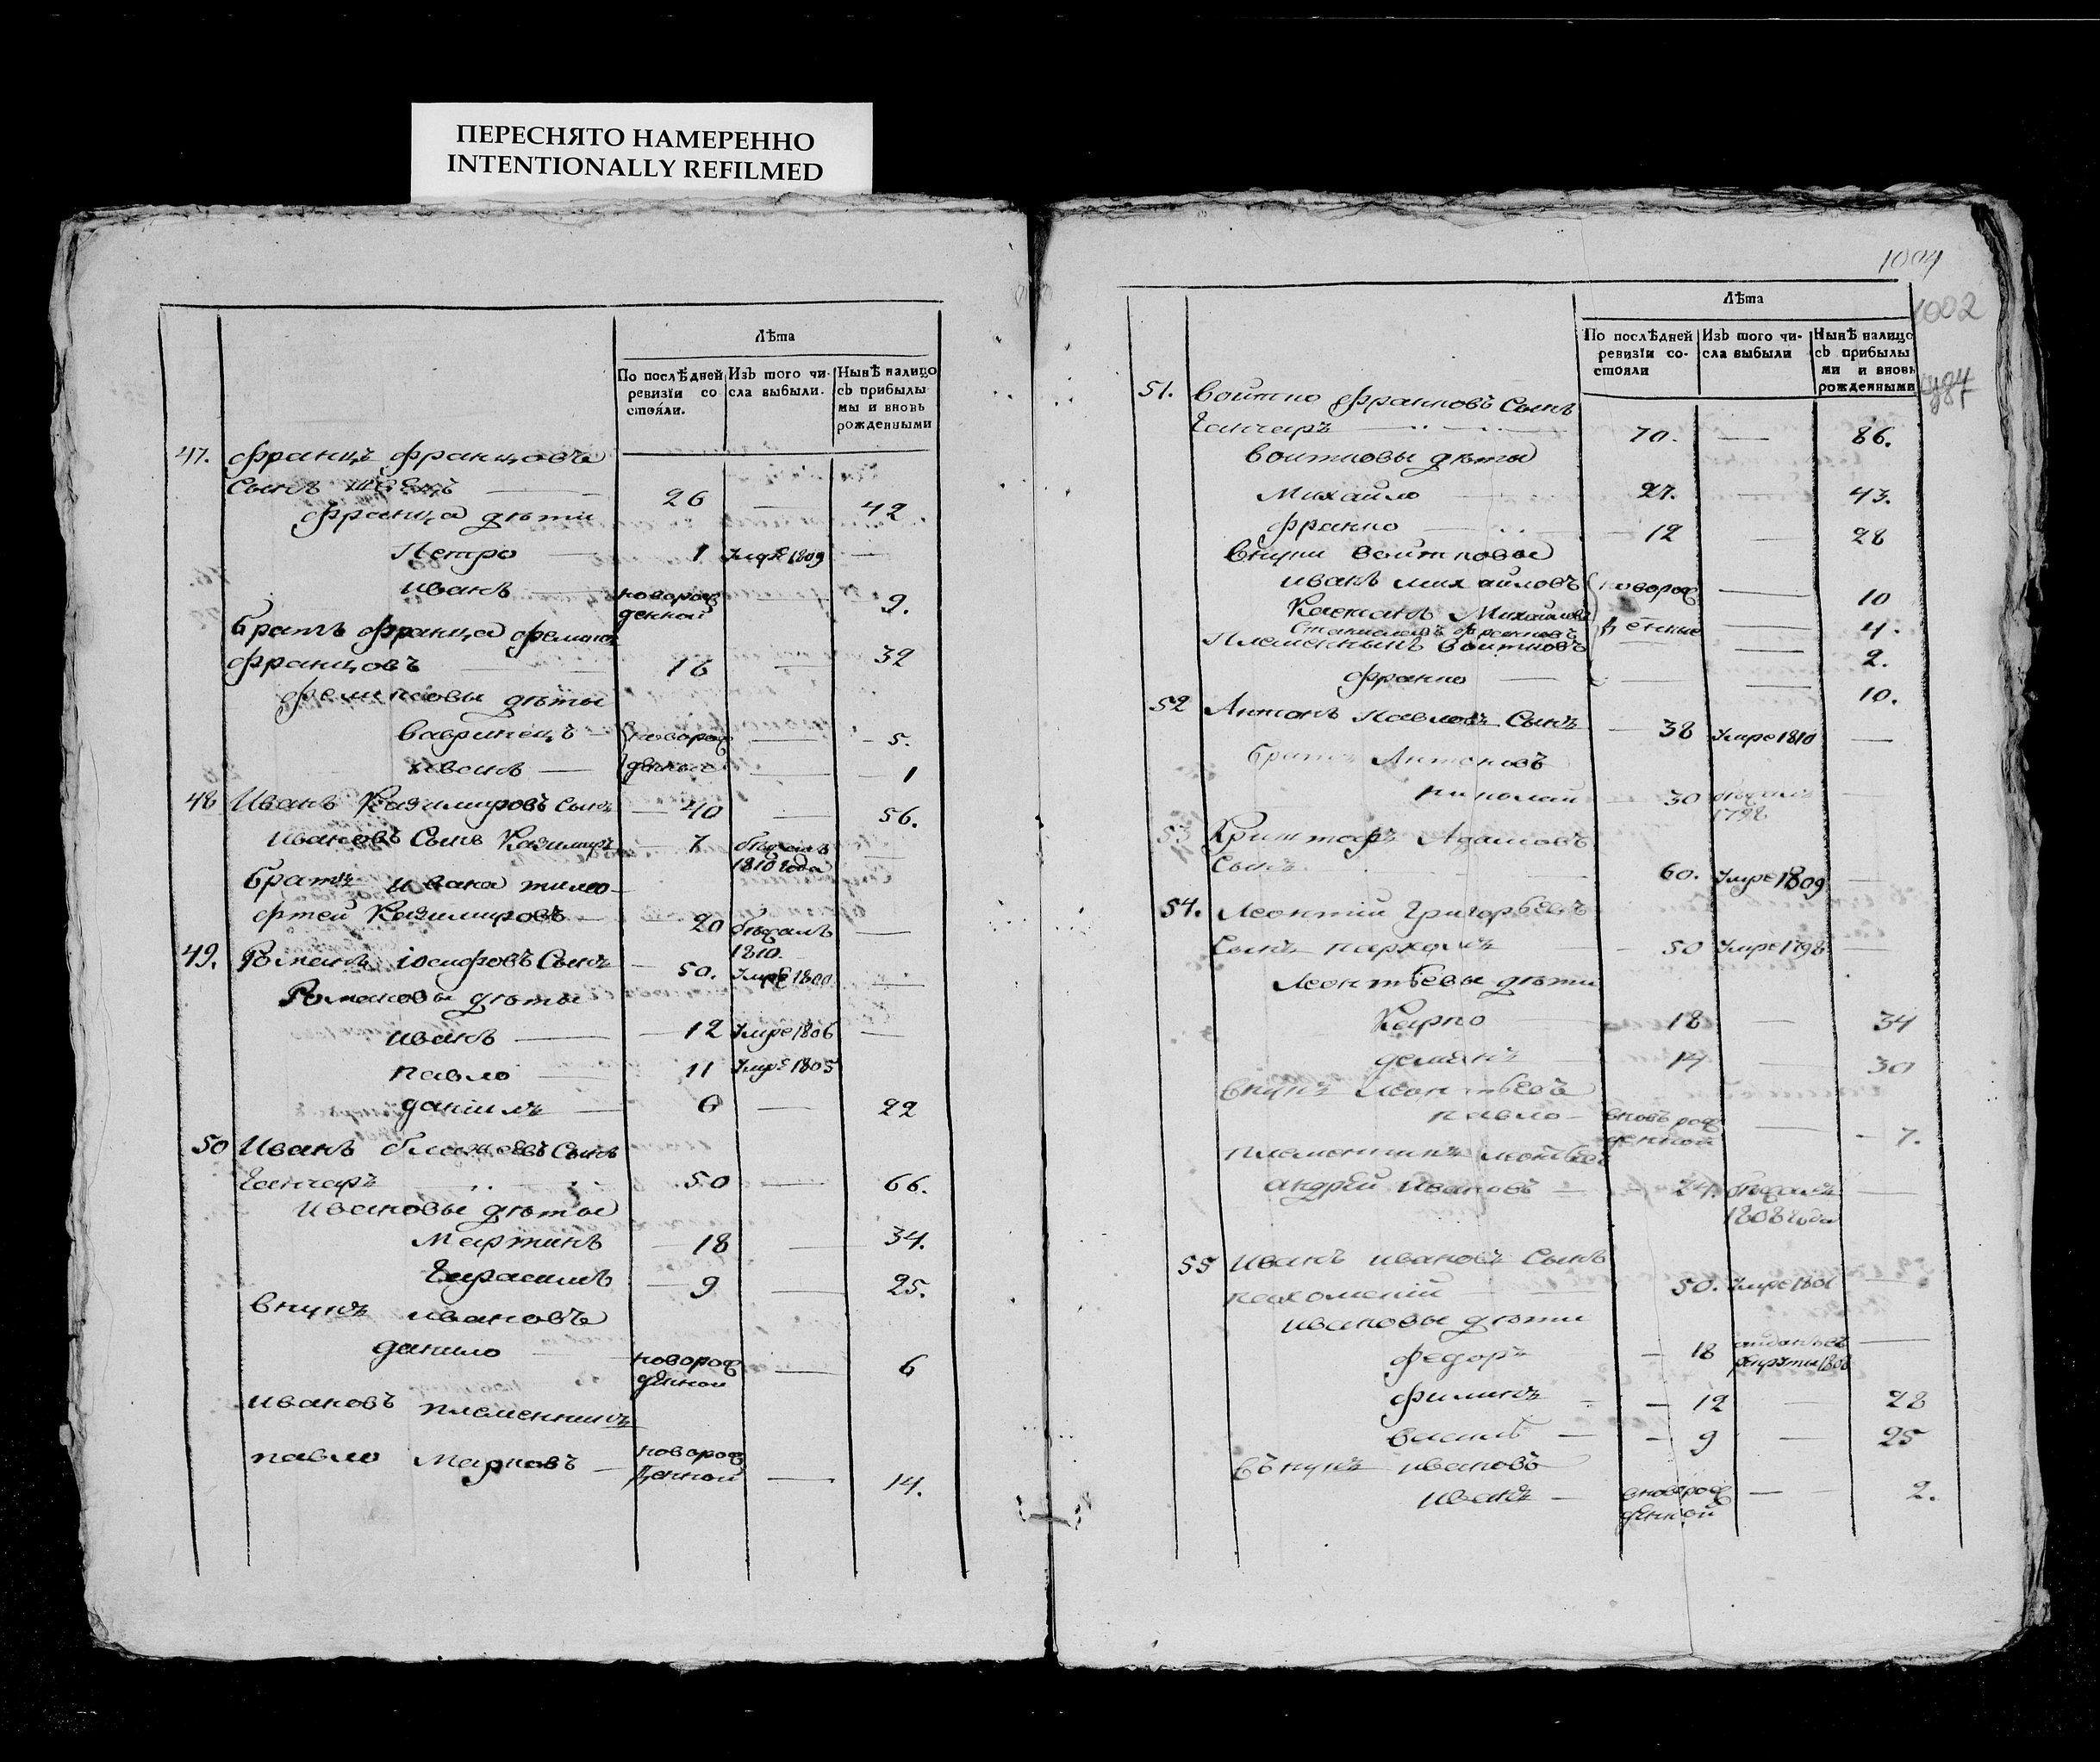 ПЕРЕСНЯТО НАМЕРЕННО
INTENTIONALLY REFILMED
Лѣта
По послѣдней ревизіи состояли.
Изъ того числа выбыли.
Нынѣ налицо съ прибылымы и вновь рожденными
47. Францъ Францовъ
Сынъ Швецъ — 26 — 42
Франца дѣти
Петро — 1 Умре 1809 —
иванъ — новорожденной — 9.
братъ Франца
Францовъ 16 — 32
дѣты
Вавринецъ — 5.
иванъ — 1
48 Иванъ Казимировъ сынъ — 40 — 56.
ивановъ Сынъ Казимиръ — 7 бѣжалъ 1810 года —
братъ ивана тимо-
фтей Казимировъ — 20 бѣжалъ 1810. —
49. Романъ іосифовъ Сынъ — 50. Умре 1800 —
Романовы дѣты
иванъ — 12 Умре 1806 —
павло — 11 Умре 1805
даніилъ — 6 — 22
50 Иванъ блажеевъ Сынъ
Ганчаръ 50 — 66.
ивановы дѣты
Мартинъ — 18 — 34.
Герасимъ — 9 — 25.
внукъ ивановъ
данило — новорожденной — 6
ивановъ племенникъ
павло Марковъ — новорожденной — 14.
1004
1002
Лѣта
По послѣдней ревизіи состояли
Изъ того числа выбыли
Нынѣ налицо съ прибылыми и вновь рожденными
51. Воитко Франковъ Сынъ
Ганчаръ 70. — 86.
Воитковы дѣты
Михайло 27. — 43.
Франко — 12 — 28
внуки Воитковы
иванъ михайловъ новорож — 10
Михайловъ денные — 4.
Станиславъ Франковъ — 2.
Племенникъ Воитковъ
Франко — 10.
52 Антонъ Павловъ Сынъ — 38 Умре 1810 —
братъ Антоновъ
николай — 30 бѣжалъ 1798 —
53 Криштофъ Адамовъ
Сынъ 60. Умре 1809 —
54. Леонтій Григорьевъ
Сынъ пархомъ — 50 Умре 1798 —
Леонтьевы дѣти
Карпо 18 — 34
демянъ 14 — 30
внукъ Леонтьевъ
павло — вновь рожденной — 7.
племенникъ леонтьев
андрѣй ивановъ — 24. бѣжалъ 1808 года —
55 Иванъ ивановъ Сынъ
50. Умре 1801 —
ивановы дѣти
федоръ — 18 —
филипъ — 12 — 28
василь — 9 — 25
внукъ ивановъ
иванъ — новорожденной — 2.